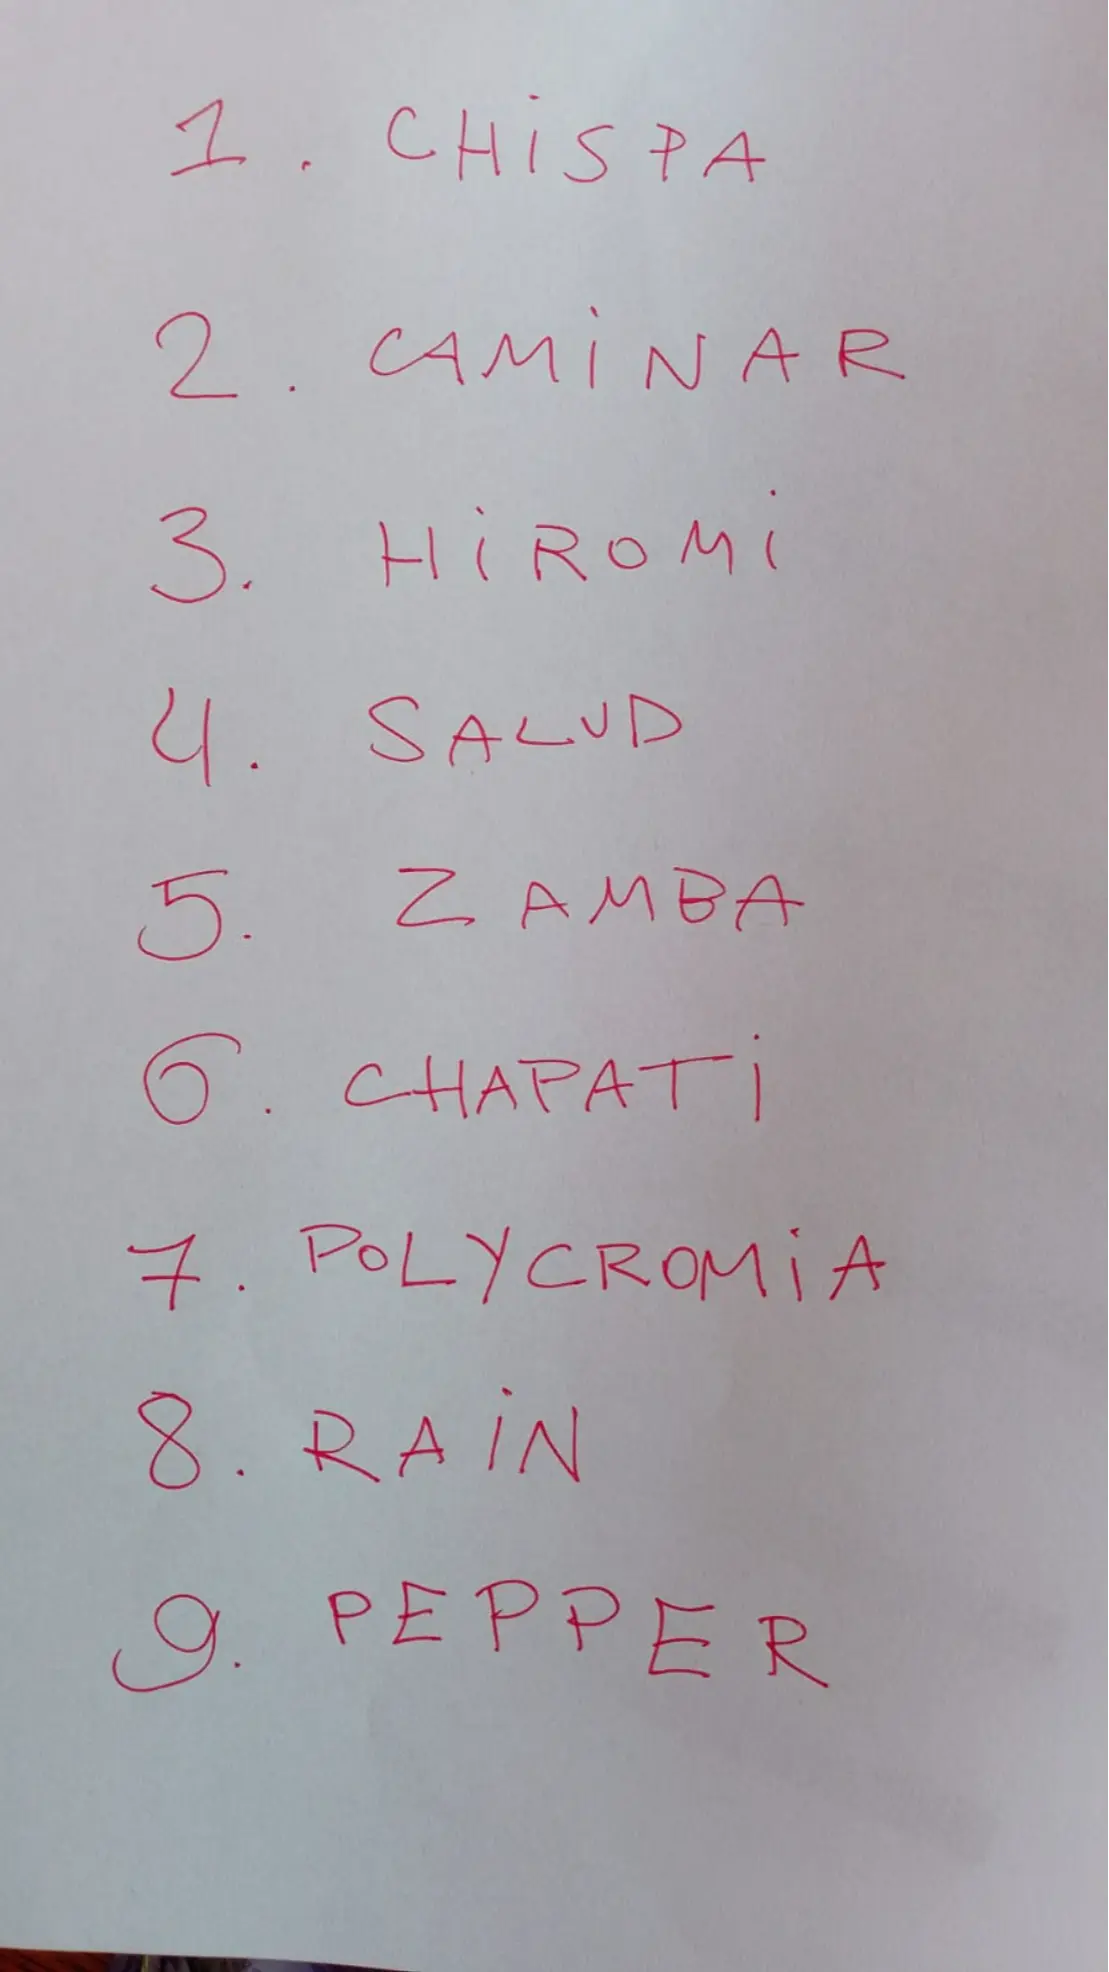 1. CHiSPA
2. CAMiNAR
3. HiROMi
4. SALUD
5. ZAMBA
6. CHAPATi
7. POLYCROMiA
8. RAiN
9. PEPPER